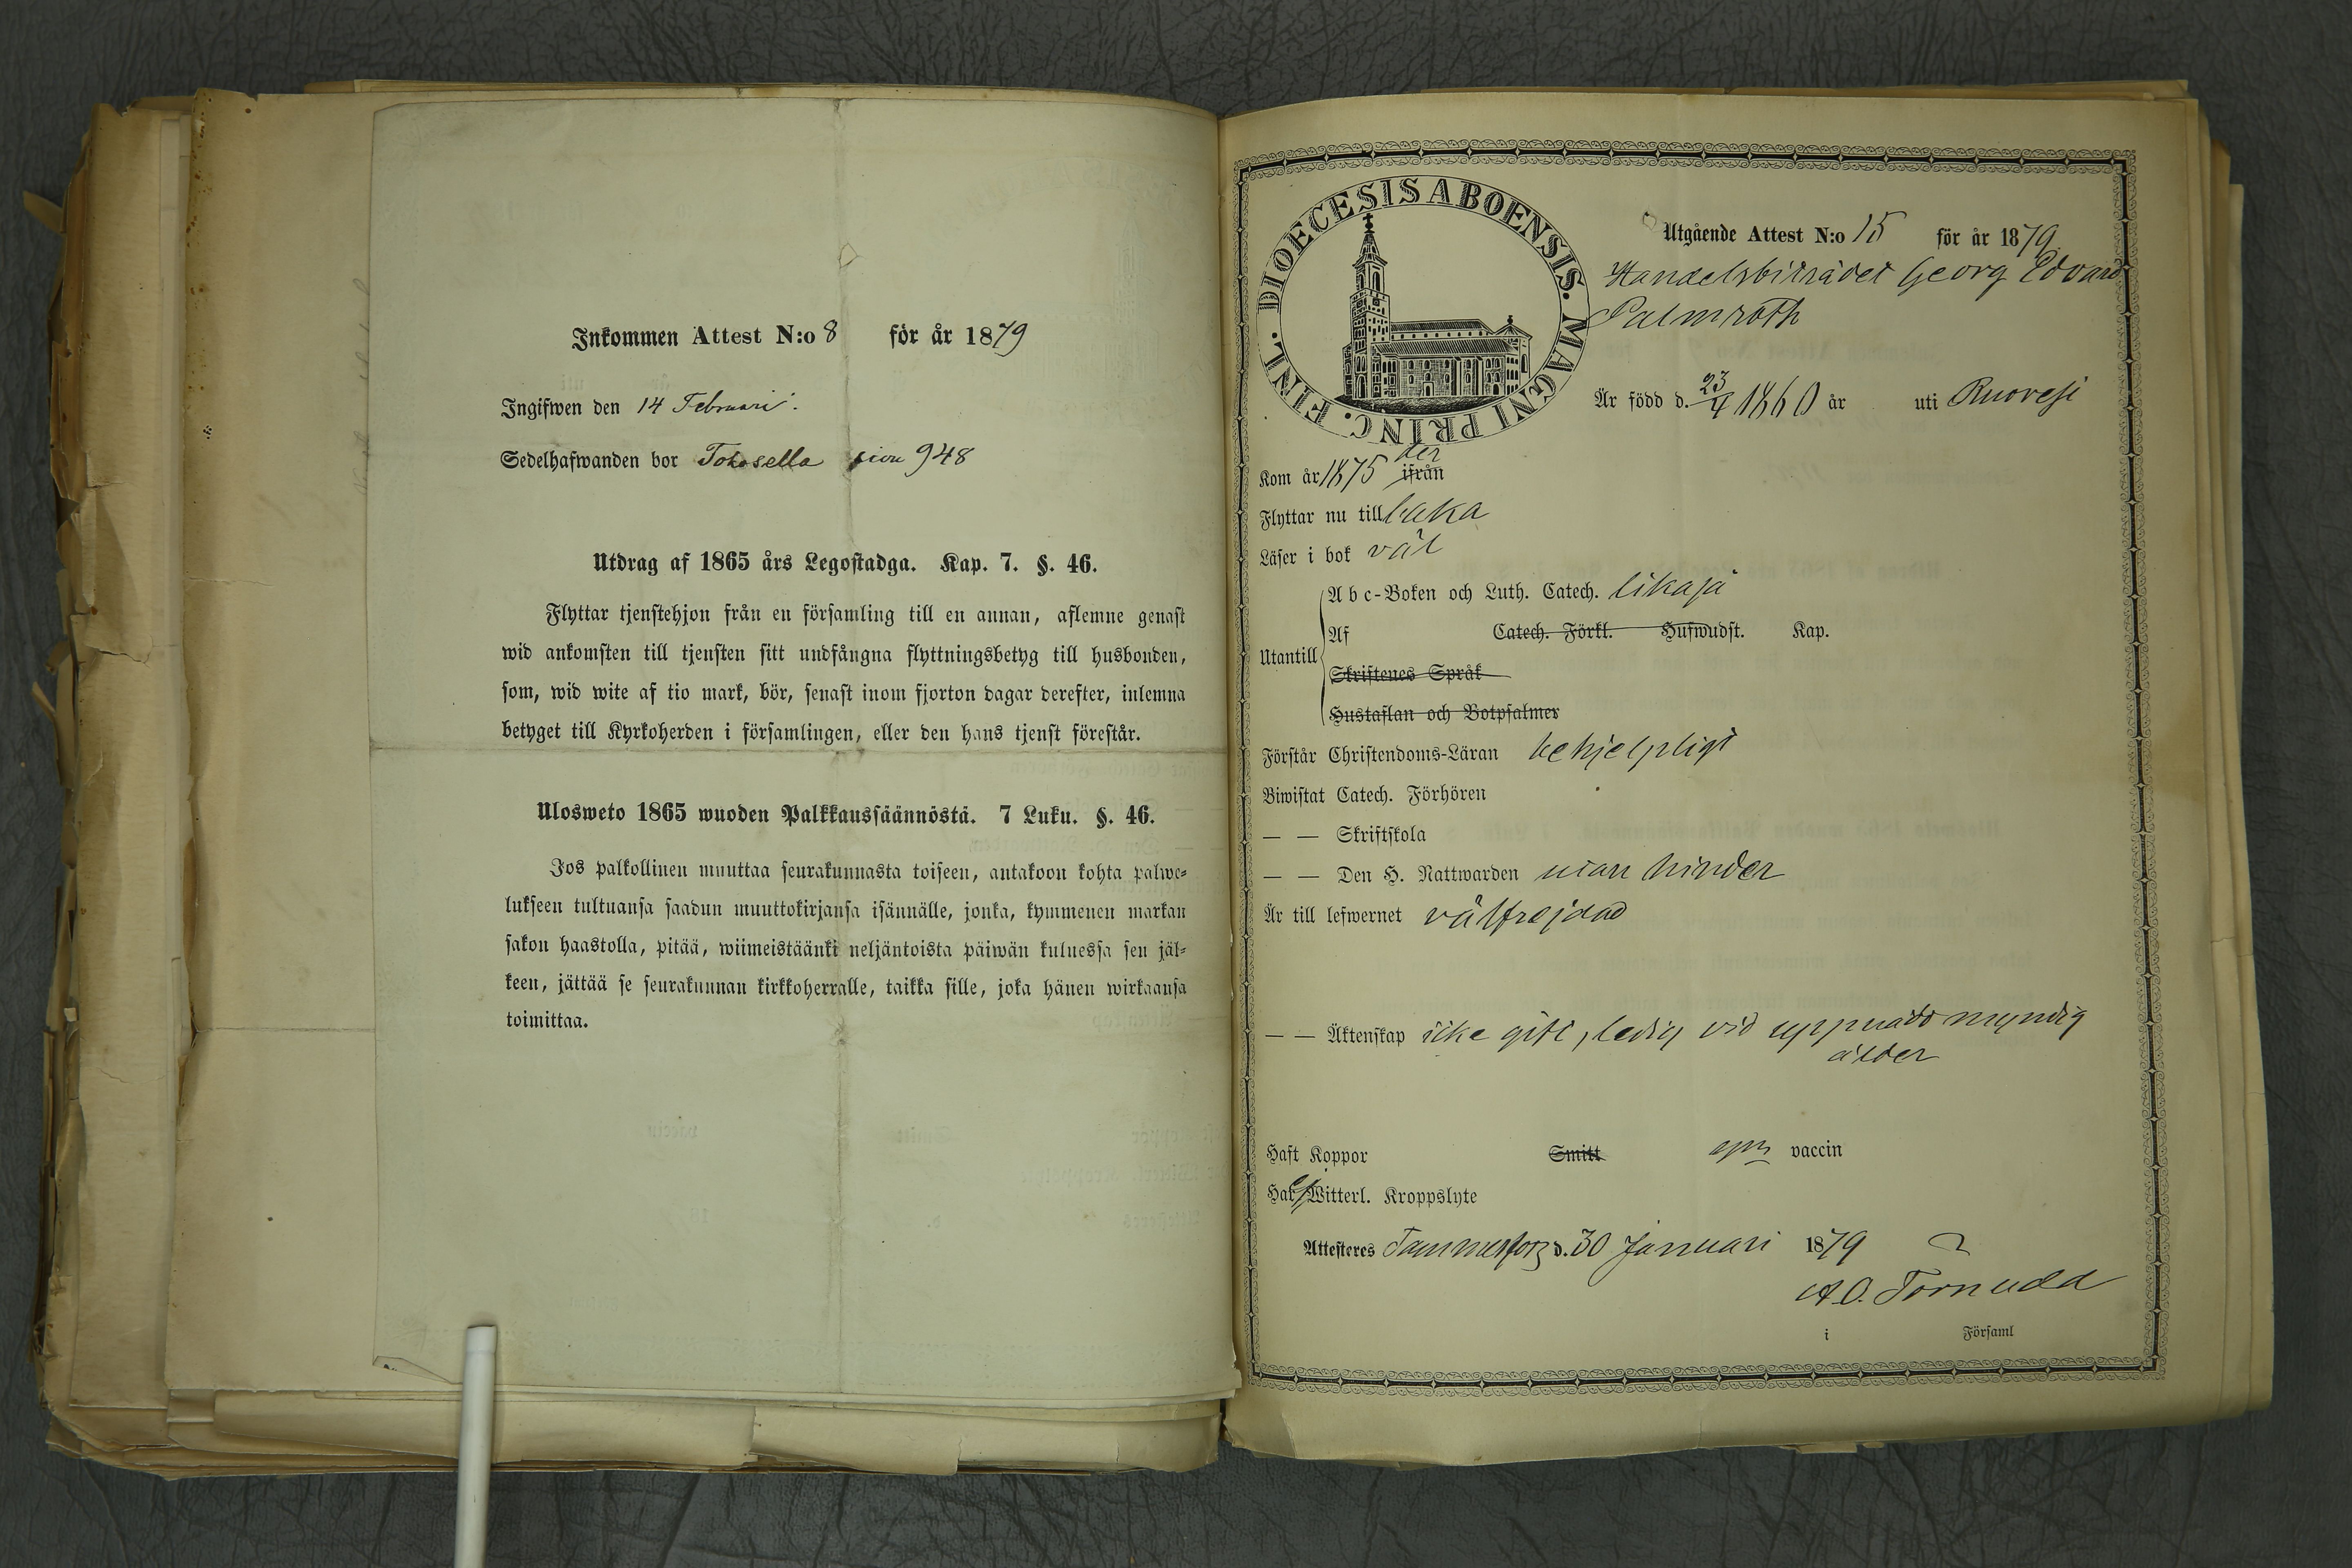 Inkommen Attest N:o 8 för år 1879
Ingifwen den 14 Februari.
Sedelhafwanden bor Tokosella sivu 948
Utdrag af 1865 års Legostadga. Kap. 7. §. 46.
Flyttar tjenstehjon från en församling till en annan, aflemne genast
wid ankomsten till tjensten sitt undfångna flyttningsbetyg till husbonden,
som, wid wite af tio mark, bör, senast inom fjorton dagar derefter, inlemna
betyget till Kyrkoherden i församlingen, eller den hans tjenst förestår.
Ulosweto 1865 wuoden Palkkaussäännöstä. 7 Luku. §. 46.
Jos palkollinen muuttaa seurakunnasta toiseen, antakoon kohta palwe-
lukseen tultuansa saadun muuttokirjansa isännälle, jonka, kymmenen markan
sakon haastolla, pitää, wiimeistäänki neljäntoista päiwän kuluessa sen jäl-
keen, jättää se seurakunnan kirkkoherralle, taikka sille, joka hänen wirkaansa
toimittaa.
DIOECESIS ABOENSIS. MAGNI PRINC. FINL.
Utgående Attest N:o 15 för år 1879
Handelsbiträdet Georg Edvard
Palmroth
Är född d. 23/4 1860 år uti Ruovesi
Kom år 1875 der ifrån
Flyttar nu till baka
Läser i bok väl
Abc-Boken och Luth. Catech. likaså
Utantill
Af Catech. Förkl. Hufwudst. Kap.
Skriftenes Språk
Hustaflan och Botpsalmer
Förstår Christendoms-Läran behjelpligt
Biwistat Catech. Förhören
— — Skriftskola
— — Den H. Nattwarden utan hinder
Är till lefwernet välfrejdad
— — Äktenskap icke gift, ledig vid uppnådd myndig
ålder
Haft Koppor Smitt vaccin
Har ej Witterl. Kroppslyte
Attesteres Tammerfors d. 30 Januari 1879
A. O. Törnudd
i Församl